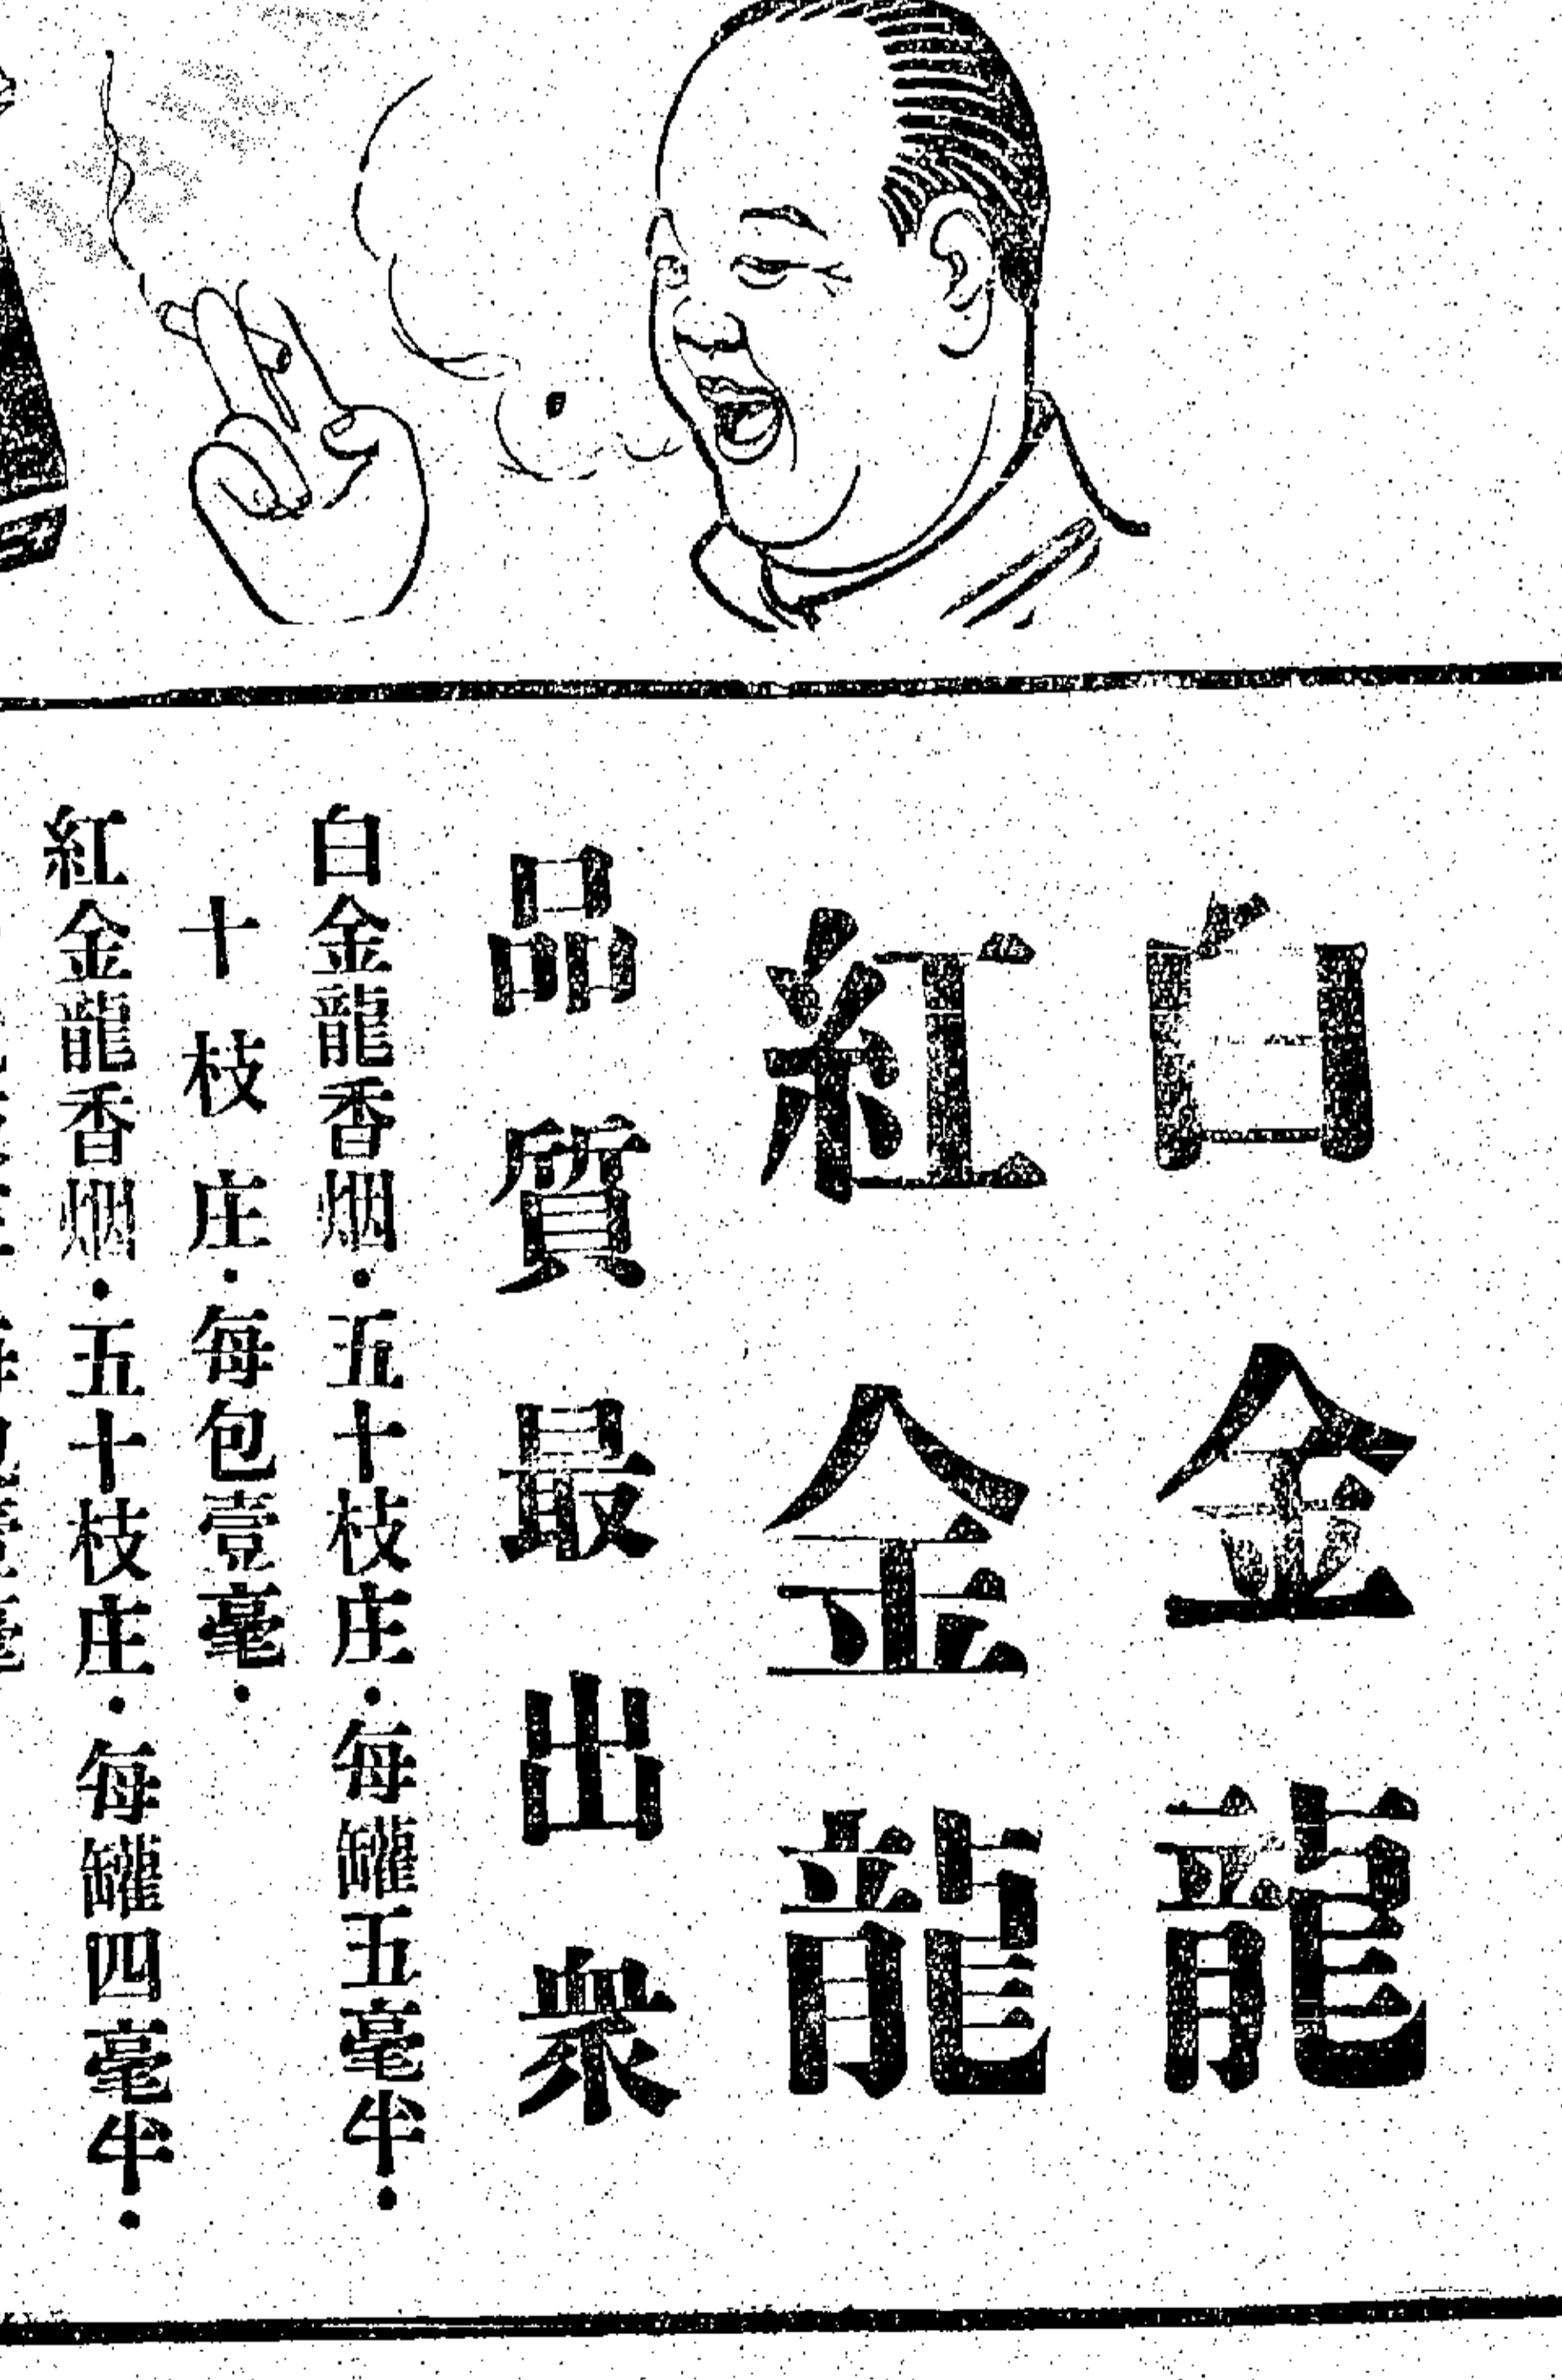 白金龍
紅金龍
品質最出衆
白金龍香烟·五十枝庄·每罐五毫半·
十枝庄·每包壹毫·
紅金龍香烟·五十枝庄·每罐四毫半·